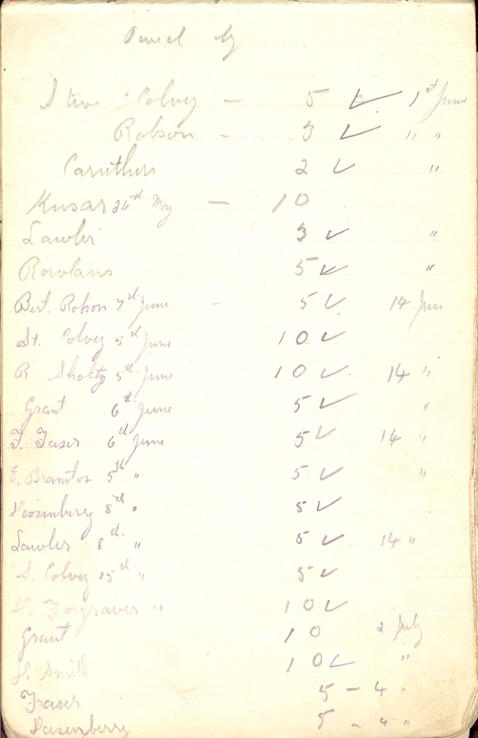 Steve Colvey — 5 ✓ 1st June
Robson - 3 ✓ " "
Caruthers 2 ✓ "
Kusar 26th May — 10
Lawler 3 ✓ "
Rowlans 5 ✓ "
Bert. Robson 7th June - 5 ✓ 14 June
St. Colvey 5th June 10 ✓
R Sholtz 5th June 10 ✓ 14 "
Grant 6th June 5 ✓ "
F. Faser 6th June 5 ✓ 14 "
E. Bramton 5th " 5 ✓ "
8th " 5 ✓
Lawler 8th " 5 ✓ 14 "
S. Colvey 15th " 5 ✓
Forgraver " 10 ✓
Grant 10 2 July
H. Smith 10 ✓ "
Fraser 5 — 4 "
5 - "